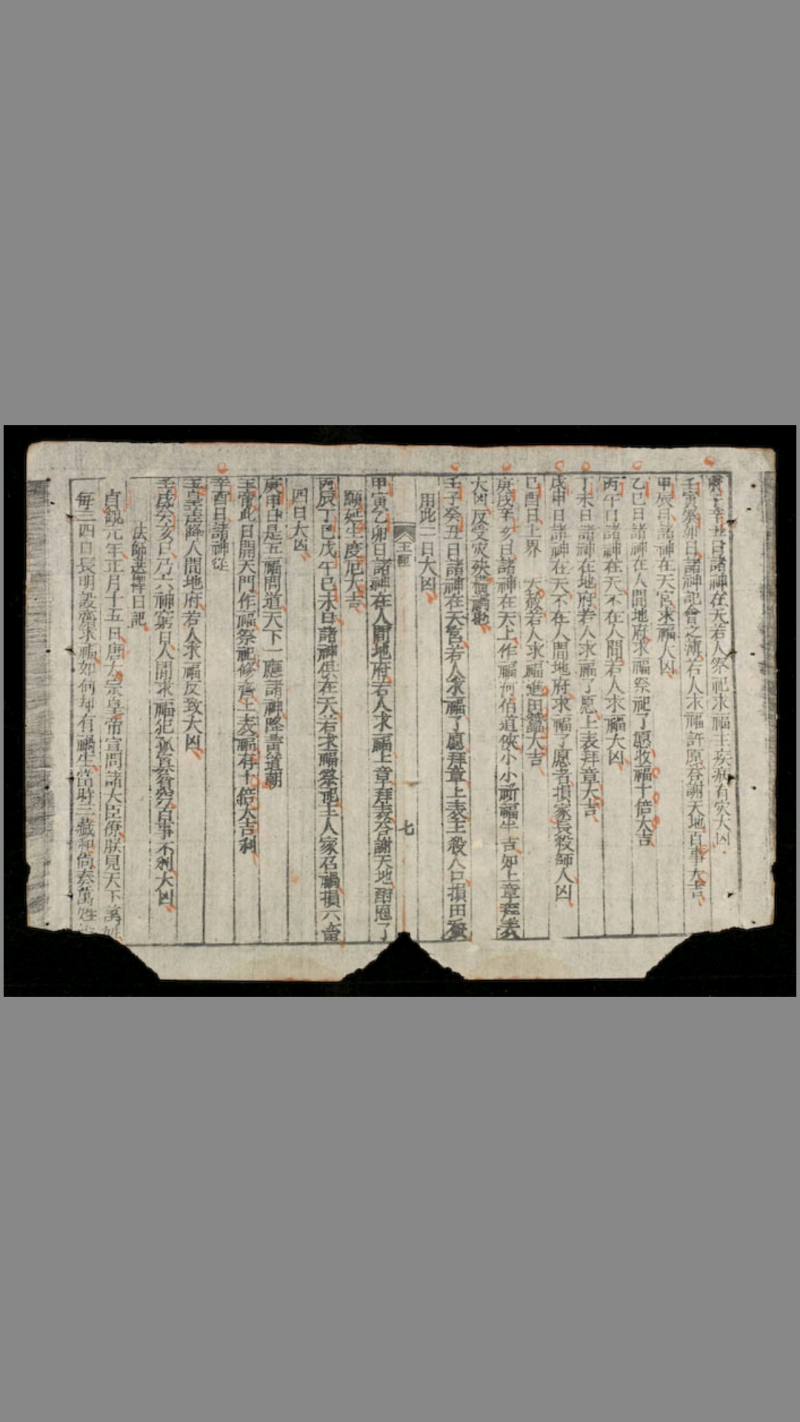 辛丑日諸神在天若人祭祀求福主疾病有灾大凶
壬寅癸卯日諸神記會之簿若人求福許愿荅謝天地百事大吉
甲辰日諸神在天宮求福大凶
乙巳日諸神在人間地府求福祭祀了愿收福十倍大吉
丙午日諸神在天不在人間若人求福大凶
丁未日諸神在地府若人求福了愿上表拜章大吉
戊申日諸神在天不在人間地府求福了愿者損家長殺師人凶
己酉日上界 大 若人求福進田蠶大吉
庚戌辛亥日諸神在天上作福何伯道俠小小祈福半吉如上章拜表
大凶反受灾殃
壬子癸丑日諸神在天宮若人求福了愿拜章上表主殺人口損田蚕
用此二日大凶
七
甲寅乙卯日諸神在人間地府若人求福上章拜表荅謝天地 愿了
願延生度厄大吉
丙辰丁巳戊午己未日諸神俱在天若求福祭祀主人家召禍損六畜
四日大凶
庚申日是五福問道天下一應諸神降 道朝
玉帝此日開天門作福祭祀修齋上表福有十倍大吉利
辛酉日諸神從
玉皇 降人間地府若人求福反致大凶
壬戌癸亥日乃六神窮日人間求福犯 百事不利大凶
法師選擇日記
貞觀元年正月十五日唐太宗皇帝宣問諸大臣僚朕見天下萬姓
每三四日長明設齋求福如何却有禍生當時三藏和尚奏萬姓